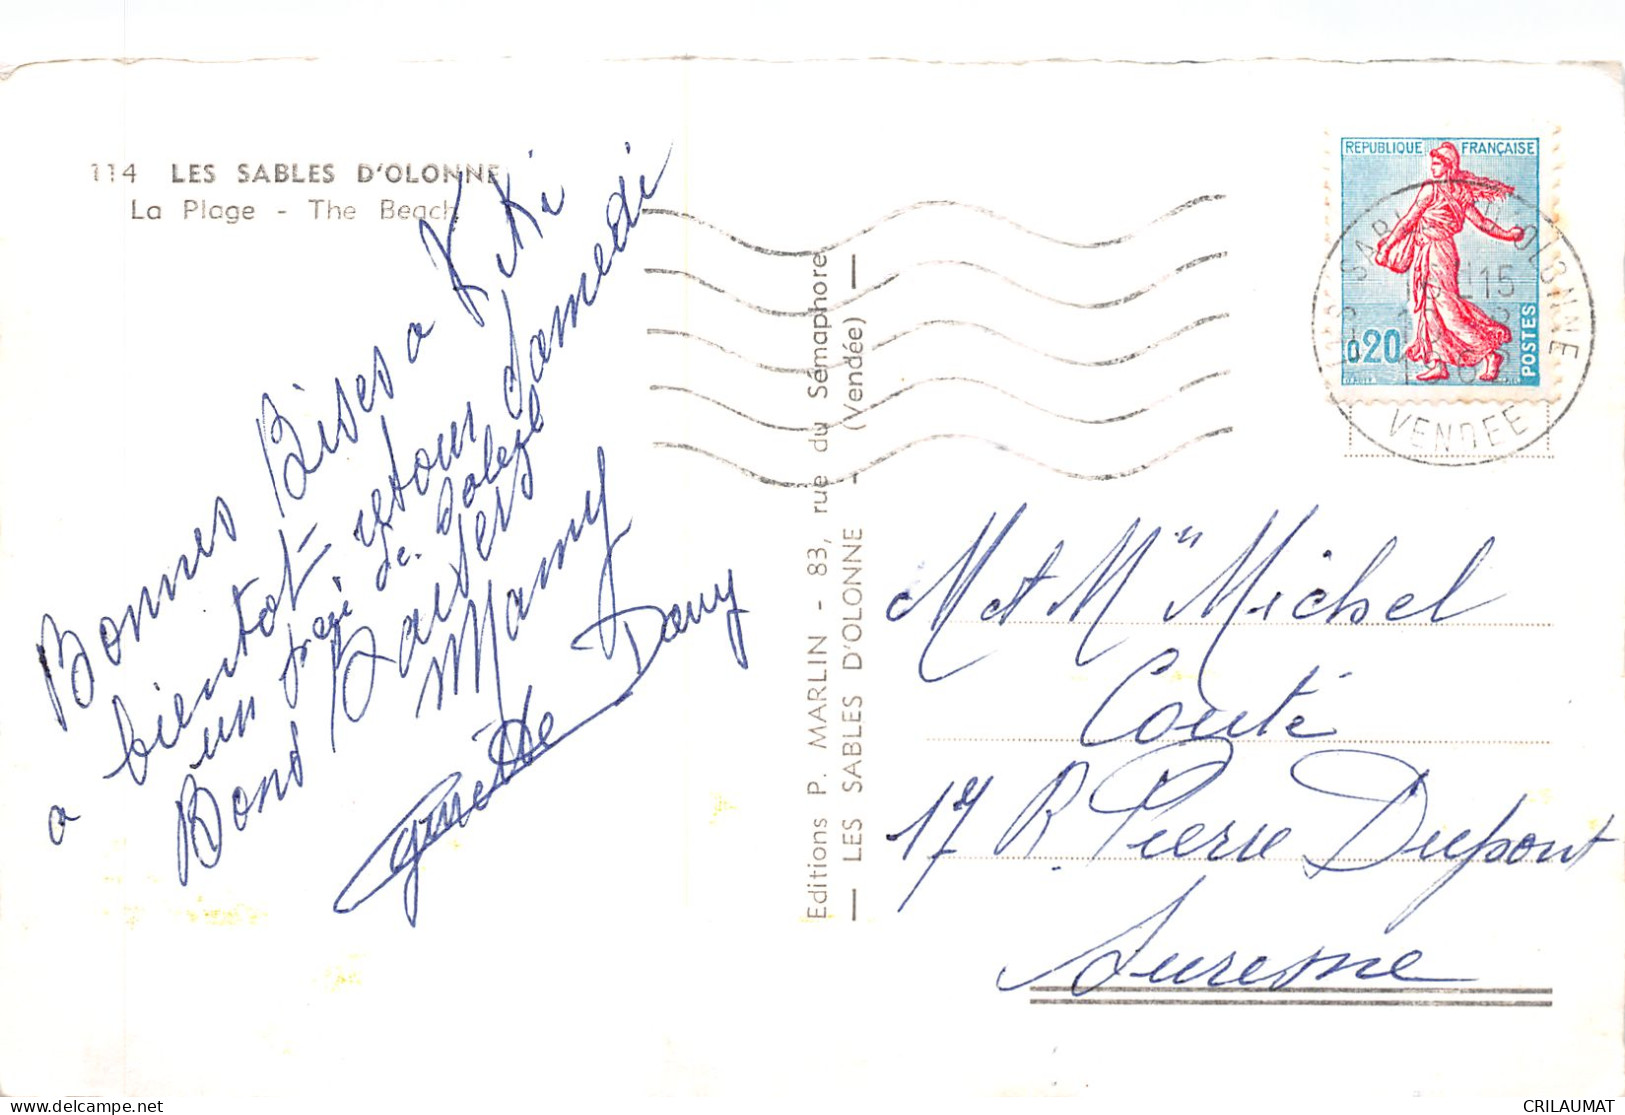 114 LES SABLES D'OLONNE
La Plage - The Beach
Bonnes Bises a Kiki
a bientot retour Samedi
un
de soleil
Bons Baisers
Mamy
Ginette Dany
Editions P. MARLIN - 83, rue du Sémaphore
— LES SABLES D'OLONNE - (Vendée) —
REPUBLIQUE FRANÇAISE
0,20
POSTES
LES SABLES D'OLONNE
15
VENDEE
M et Mme Michel
Couté
17 R. Pierre Dupont
Suresne
delcampe.net
CRILAUMAT